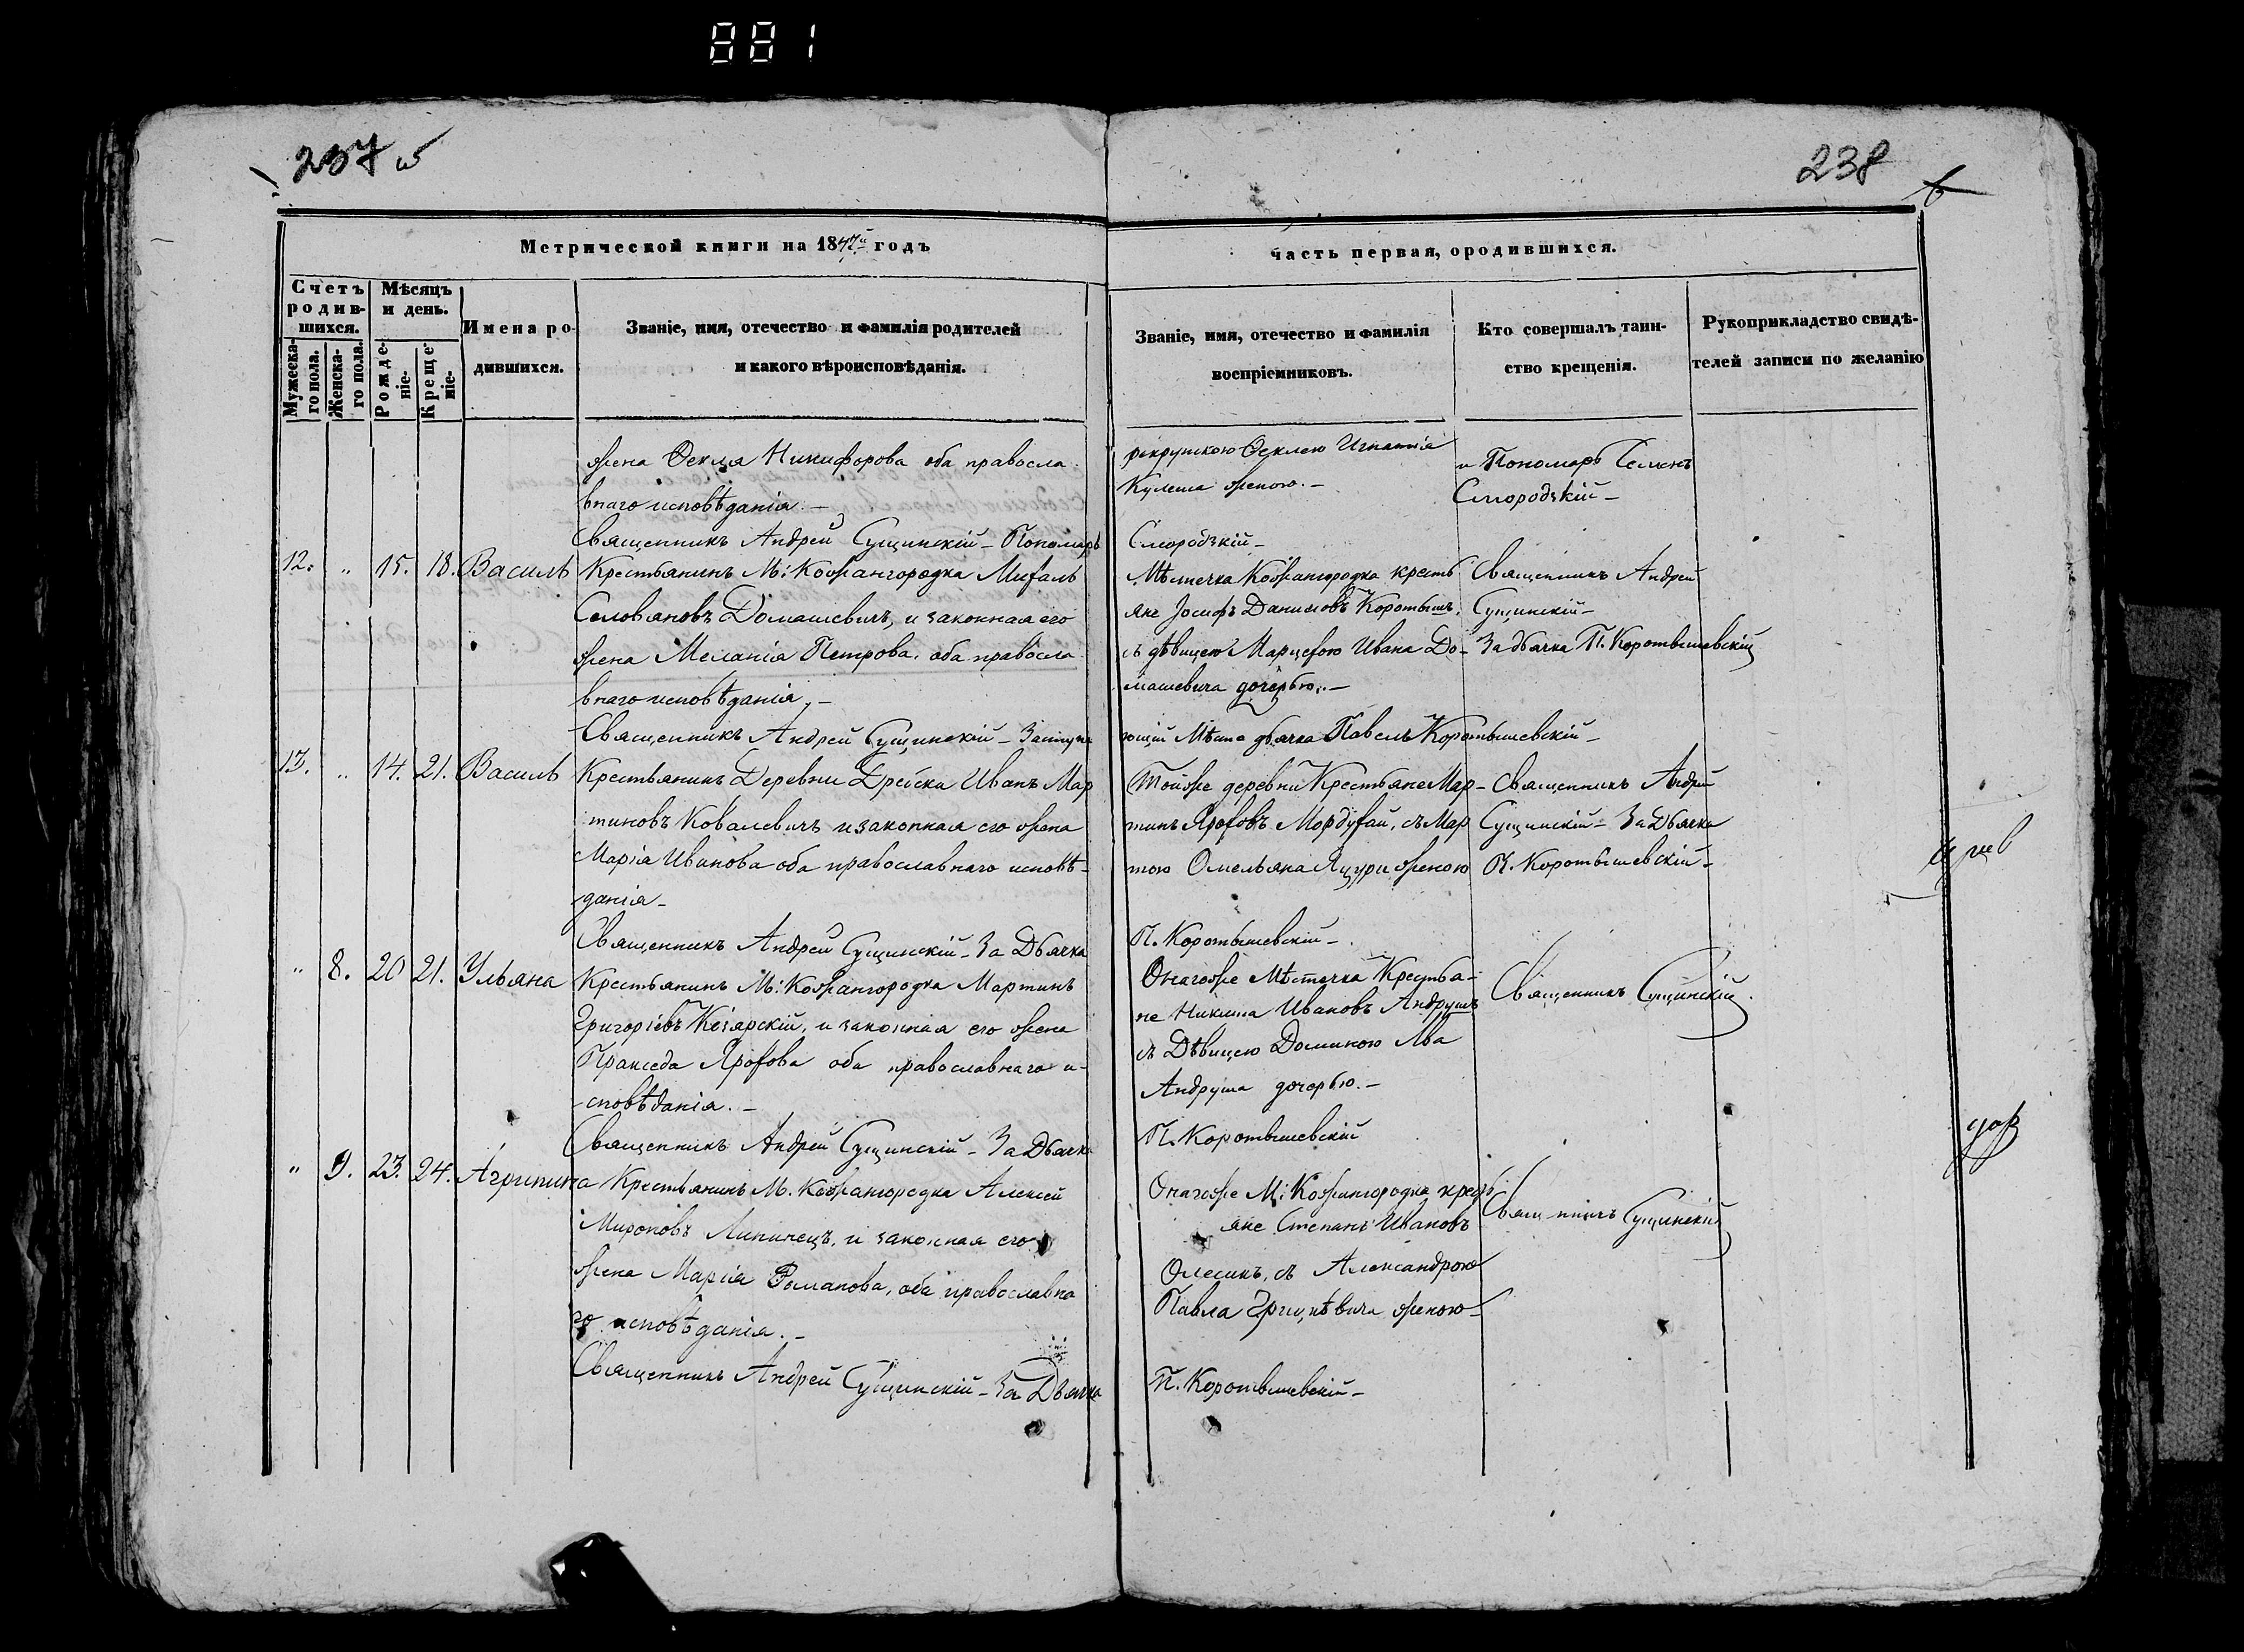 881
237 об
238
Метрической книги на 1847й годъ
часть первая, ородившихся.
Счетъ родив-шихся.
Мужеска-го пола.
Женска-го пола.
Мѣсяцъ и день.
Рожде-ніе-
Креще-ніе-
Имена ро-дившихся.
Званіе, имя, отечество и фамилія родителей
и какого вѣроисповѣданія.
Званіе, имя, отечество и фамилія
воспріемниковъ.
Кто совершалъ таин-
ство крещенія.
Рукоприкладство свидѣ-
телей записи по желанію
жена Ѳекла Никифорова оба правосла
внаго исповѣданія. —
Священникъ Андрей Сущинскій — Пономарь
рекруткою Ѳеклею Игнатія
Кулеша женою. —
Смородзкій —
и Пономарь Семенъ
Смородзкій —
12. " 15. 18. Василь
Крестьянинъ М: Кожангородка Михалъ
Селовяновъ Домашевичъ, и законная его
жена Меланія Петрова, оба правосла
внаго исповѣданія, —
Священникъ Андрей Сущинскій — Заступа
Мѣстечка Кожангородка кресть
яне Іосифъ Даниловъ Коротышъ,
съ дѣвицею Марцефою Ивана До-
машевича дочерью. —
ющій Мѣсто дьячка Павелъ Коротышевскій —
Священникъ Андрей
Сущинскій —
За дьячка П. Коротышевскій
13. " 14. 21. Василь
Крестьянинъ Деревни Дребска Иванъ Мар
тиновъ Ковалевичъ и законная его жена
Марія Иванова оба православнаго исповѣ-
данія —
Священникъ Андрей Сущинскій — За Дьячка
Тойже деревни Крестьяне Мар-
тинъ Ярофовъ Мордуфай, съ Мар
тою Омельяна Яцури женою
П. Коротышевскій —
Священникъ Андрей
Сущинскій — За Дьячка
П. Коротышевскій —
" 8. 20 21. Ульяна
Крестьянинъ М: Кожангородка Мартинъ
Григоріевъ Козярскій, и законная его жена
Пракседа Ярофова оба православнаго и-
сповѣданія. —
Священникъ Андрей Сущинскій — За Дьячка
Онагоже Мѣстечка Крестья-
не Никита Ивановъ Андрушъ
съ Дѣвицею Доминою Лва
Андруша дочерью. —
П. Коротышевскій
Священникъ Сущинскій.
" 9. 23. 24. Агрипина
Крестьянинъ М. Кожангородка Алексей
Мироновъ Липинецъ, и законная его
жена Марія Романова, оба православна
го исповѣданія. —
Священникъ Андрей Сущинскій — За Дьячка
Онагоже М: Кожангородка кресть
яне Степанъ Ивановъ
Олесикъ, съ Александрою
Павла Грицкѣвича женою —
П. Коротышевскій —
Священникъ Сущинскій